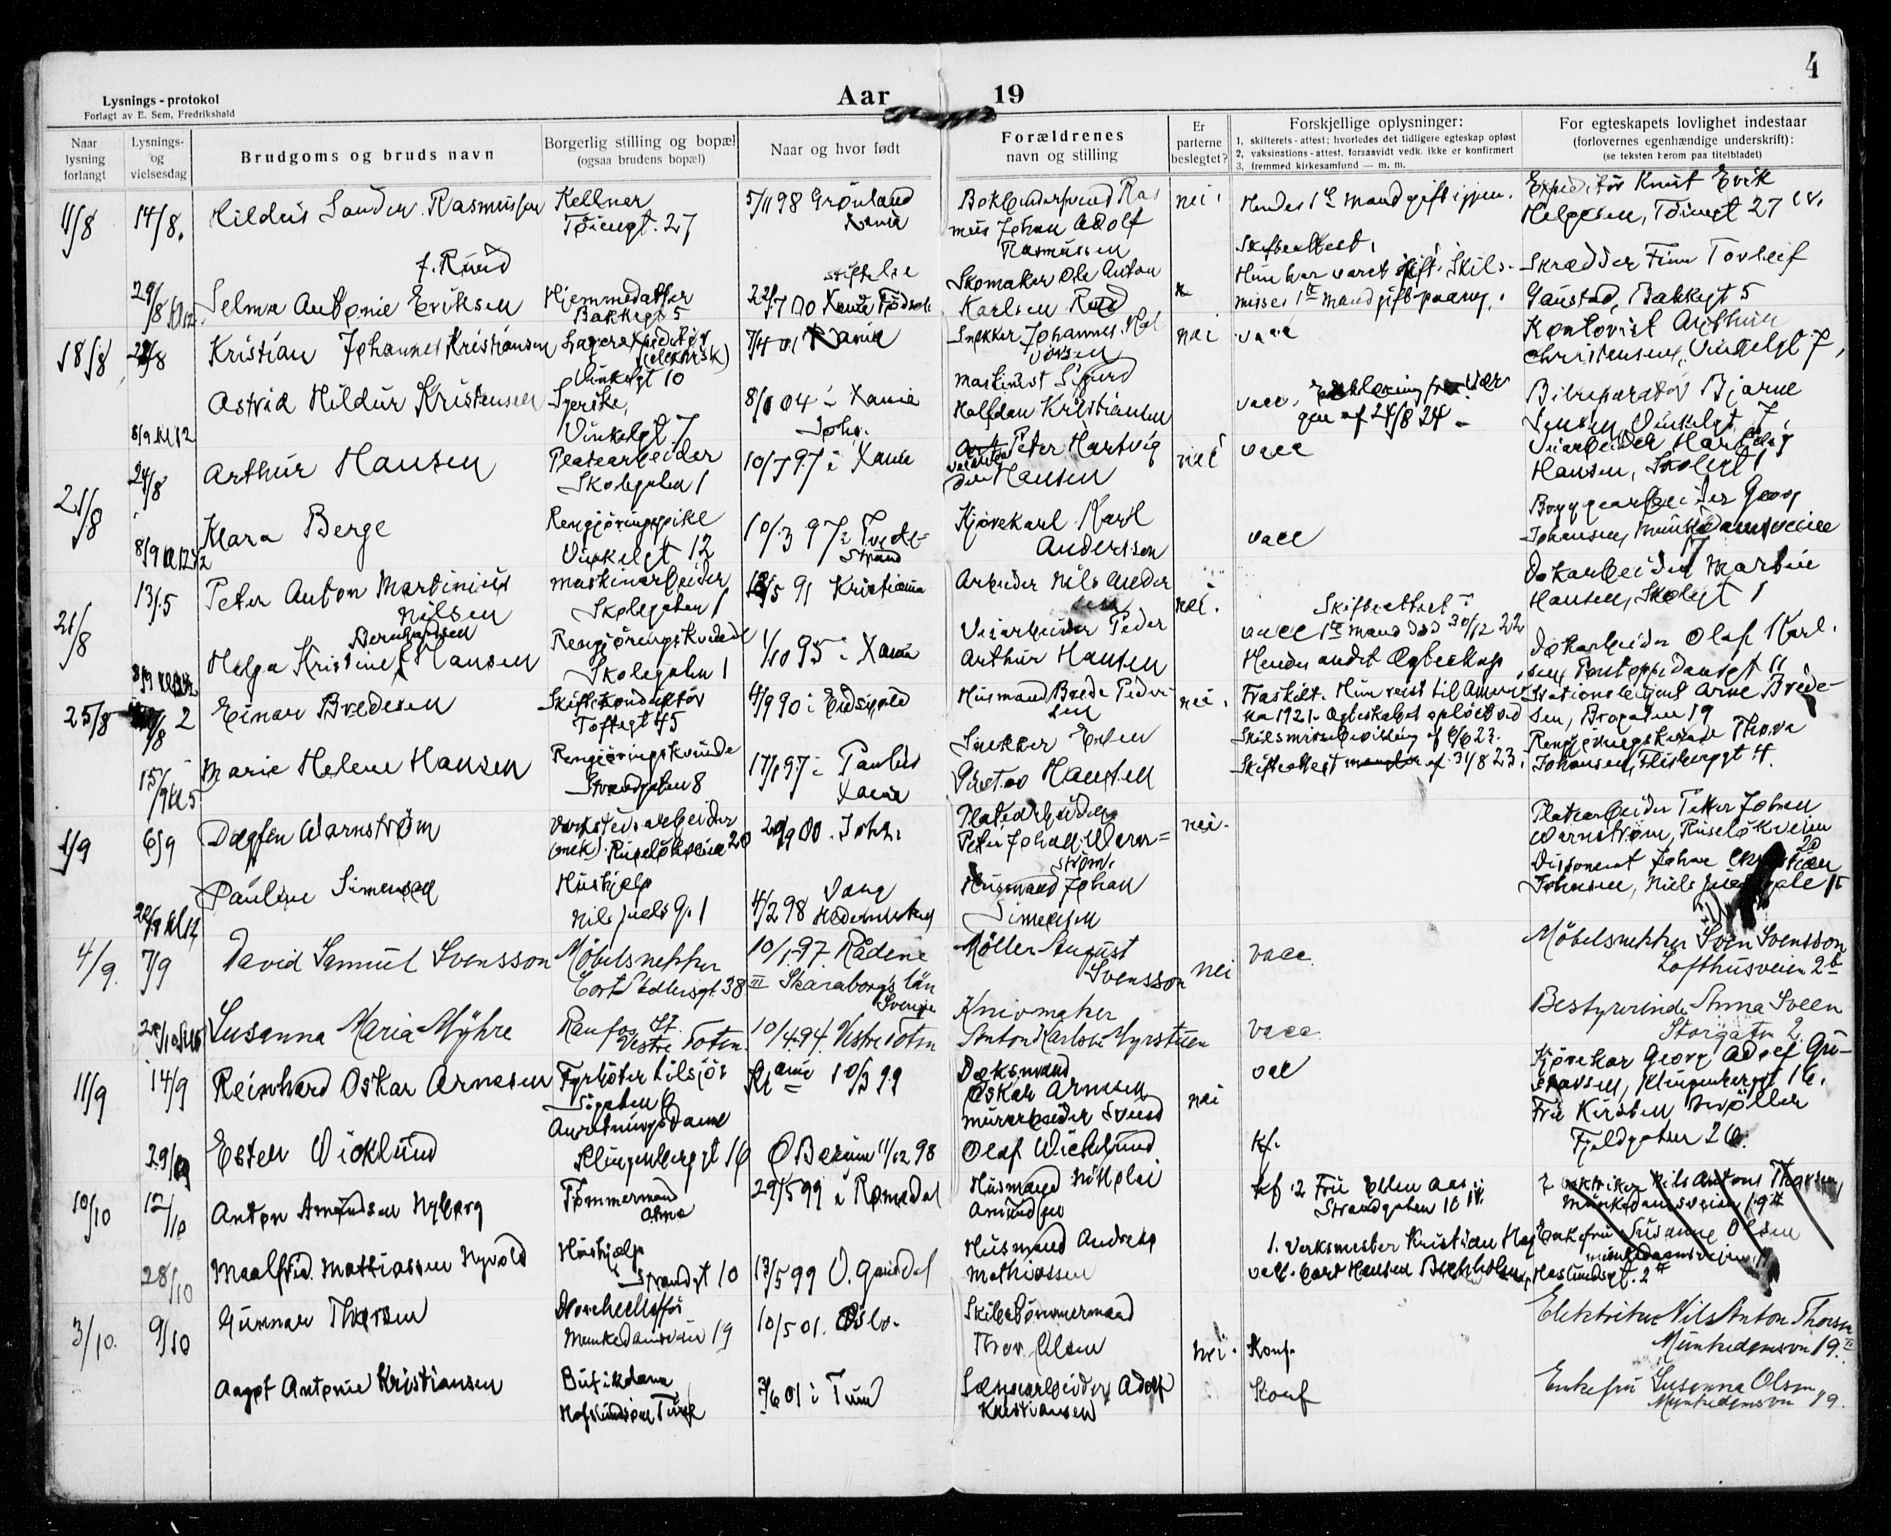 4
Lysnings-protokol
Forlagt av E. Sem, Fredrikshald
Aar 19
Naar lysning forlangt
Lysnings- og vielsesdag
Brudgoms og bruds navn
Borgerlig stilling og bopæl
(ogsaa brudens bopæl)
Naar og hvor født
Forældrenes
navn og stilling
Er parterne beslegtet?
Forskjellige oplysninger:
1. skifterets-attest; hvorledes det tidligere egteskap opløst
2. vaksinations-attest, forsaavidt vedk. ikke er konfirmert
3. fremmed kirkesamfund — m. m.
For egteskapets lovlighet indestaar
(forlovernes egenhændige underskrift):
(se teksten herom paa titelbladet)
11/8 14/8. Hildus Sander Rasmussen
Kellner
Tøiengt. 27
5/11 98 Grønland
Xania
Rasmus Johan Adolf
Rasmussen
nei
Hendes 1ste mand gift igjen.
Expeditør Knut Erik
Helgesen, Tøiengt 27
Skifteattest.
f. Ruud
Selma Antonie Eriksen
Hjemmedatter
Bakkegt 5
Xania Fødsels
stiftelse
Skomaker Ole Anton
Karlsen Ruud
Hun har været gift. Skils-
misse. 1ste mand gift paany.
Skrædder Finn Torleif
Gaustad, Bakkegt 5
18/8 Kristian Johannes Kristiansen
Lagerexpeditør
(elektrisk)
Vinkelgt 10
7/4 01 Xania
Snekker Johannes
nei
vacc
Kontorist Arthur
Christensen, Vinkelgt 7,
8/9 kl 12
Astrid Hildur Kristensen
Syerske,
Vinkelgt. 7
8/ 04 i Xania
Johs.
Maskinist Sigurd
Halfdan Kristiansen
vacc. Erklæring fra Vær
gen af 24/8 24
Bilreparatør Bjarne
Jensen, Vinkelgt. 7
21/8 24/8 Arthur Hansen
Platearbeider
Skolegaten 1
10/7 97 i Xania
Peter Hartvig
Hansen
nei
vacc
Veiarbeider Hartvig
Hansen, Skolegt 1
8/9 kl 12 1/2
Klara Berge
Rengjøringspike
Vinkelgt 12
10/3 97 i Tvede-
strand
Kjørekarl Karl
Andersson
vacc
Bryggearbeider Georg
Johansen, Munkedamsveien
17
21/8 13/5 Peter Anton Martinius
Nilsen
Maskinarbeider
Skolegaten 1
/5 91 Kristiania
Arbeider Nils Ander
sen
nei.
Skifteattest
Dokarbeider Martin
Hansen, Skolegt 1
Helga Kristine Hansen
Bernhardsen
Rengjøringskvinde
Skolegaten 1
1/10 95 i Xania
Veiarbeider Peder
Arthur Hansen
vacc 1ste mand død 30/12 22
Hendes andet Ægteskap
Dokarbeider Olaf Karl.
sen, Pontoppidansgt 11
25/8 Einar Bredesen
Skiftekonduktør
Toftegt 45
4/9 90 i Eidsvold
Husmand Brede Peder
sen
nei.
Fraskilt. Hun reist til Ameri
ka 1921. Ægteskabet opløst ved
Skilsmissebevilling af 6/6 23.
Stationsbetjent Arne Brede-
sen, Brogaten 19
15/9 kl 5
Marie Helene Hansen
Rengjøringskvinde
Strandgaten 8
17/1 97 i Paulus
Xania
Snekker
Gustav Hansen
Skifteattest mangler af 31/8 23.
Rengjøringskvinde Thora
Johansen, Flisberggt 4.
1/9 6/9 Dagfin Warnstrøm
Verkstedsarbeider
(mek). Ruseløkveien 20
/9 00. Johs.
Platearbeider
Peter Johan Warn=
strøm.
nei.
Platearbeider Peter Johan
Warnstrøm, Ruseløkveien
20
Pauline Simensen
Hushjelp
Nils Juels g. 1
4/2 98 Vang
Hedemarken
Husmand Johan
Simensen
Disponent Johan Christian
Johansen, Niels Juelsgate 15
4/9. 7/9 David Samuel Svensson
Møbelsnekker
Cort Adelersgt. 38 III
10/1.97. Rådene
Skaraborgs län
Sverige
Møller August
Svensson
nei
vacc.
Møbelsnekker Sven Svensson
Lofthusveien 2b
Susanna Maria Myhre
Raufos St.
Vestre Toten.
10/4.94. Vestre Toten
Knivmaker
Anton Karlsen Myrstuen
vacc.
Bestyrerinde Anna Sveen
Storgaten 2.
11/9 14/9 Reinhard Oskar Arnesen
Fyrbøter Lilsjør
Sjøgaten 6
Krania 10/3 99
Dæksmand
Oskar Arnesen
nei
vac
Kjørekar Georg Adolf Gu-
stavsen, Klingenberggt 16.
Ester Wicklund
Anretningsdame
Klingenberggt 16
Ø Bærum 11/12 98
Murarbeider Svend
Olaf Wicklund
kf.
Fru Kirsten Møller
Fjeldgaten 26.
10/10 12/10 Anton Amundsen Nyborg
Tømmermand
29/5 99 i Romedal
Husmand Nikolai
Amundsen
kf. 2 Fru Ellen Aas
Strandgaten 10 IV.
2 Elektriker Nils Antons Thorsen
Munkedamsveien 19 II
28/10
Maalfrid Mathiassen Nyvold
Hushjælp
Strandgt 10
13/5 99 V. Gausdal
Husmand Andreas
Mathiassen
1. Verksmester Kristian Has
vacc. Carl Hansen Bekholen, Haslundsgt. 2 II
Enkefru Susanne Olsen
Munkedamsveien 19
3/10. 9/10 Gunnar Thorsen
Munkedamsveien 19
10/5 01. Oslo.
Skibstømmermand
Thor Olsen
nei.
Konf.
Elektriker Nils Anton Thorsen
Munkedamsvn 19. II
Aagot Antonie Kristiansen
Butikdame
Hafslundsøen Tune
/6 01 i Tune
Adolf
Kristiansen
Konf
Enkefru Susanna Olsen
Munkedamsvn 19.